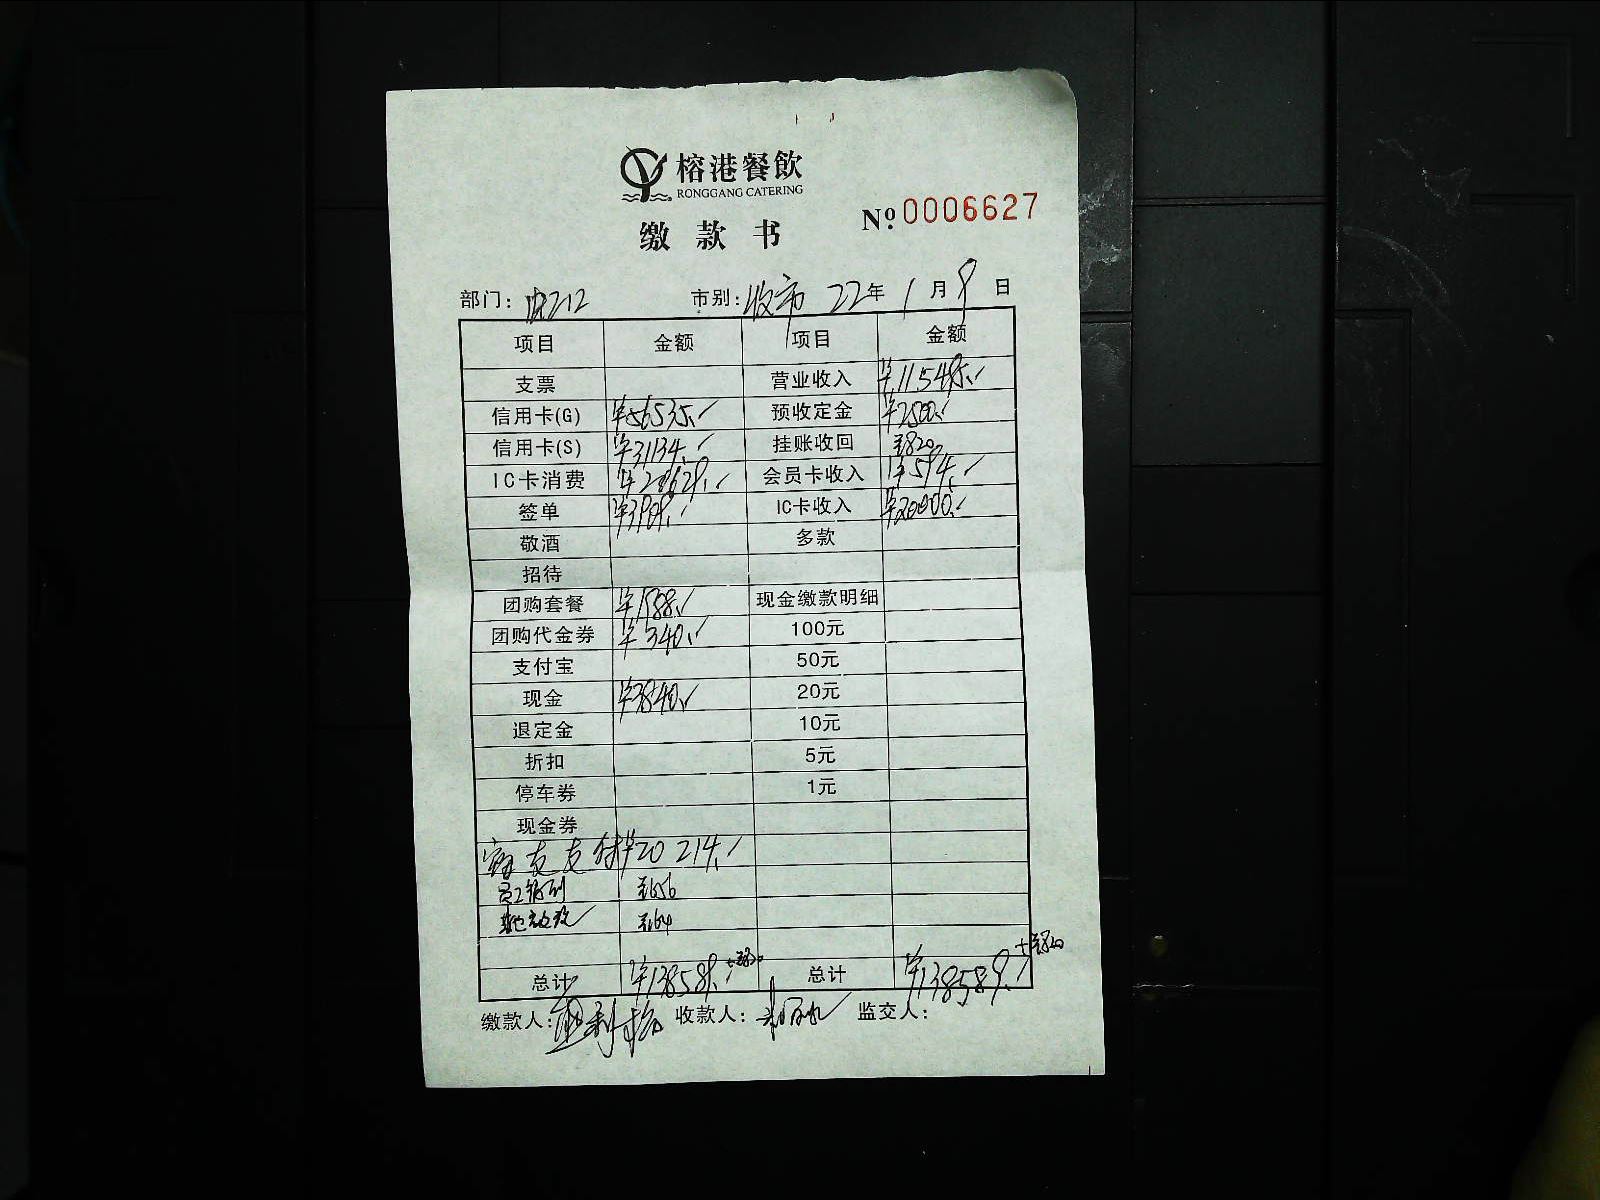 榕港餐飲
RONGGANG CATERING
缴款书 №0006627
部门: 市别: 收市 22年 1月 9日
项目 金额 项目 金额
支票 营业收入 ¥115495.
信用卡(G) ¥56535. 预收定金 ¥2500.
信用卡(S) ¥31134. 挂账收回 ¥820
IC卡消费 ¥20629. 会员卡收入 ¥594.
签单 ¥3909. IC卡收入 ¥20000.
敬酒 多款
招待
团购套餐 ¥1988. 现金缴款明细
团购代金券 ¥340. 100元
支付宝 50元
现金 ¥3840. 20元
退定金 10元
折扣 5元
停车券 1元
现金券
支付 ¥20214.
¥656
¥164
总计 ¥138589. +¥820 总计 ¥138589. +¥820
缴款人: 收款人: 监交人: